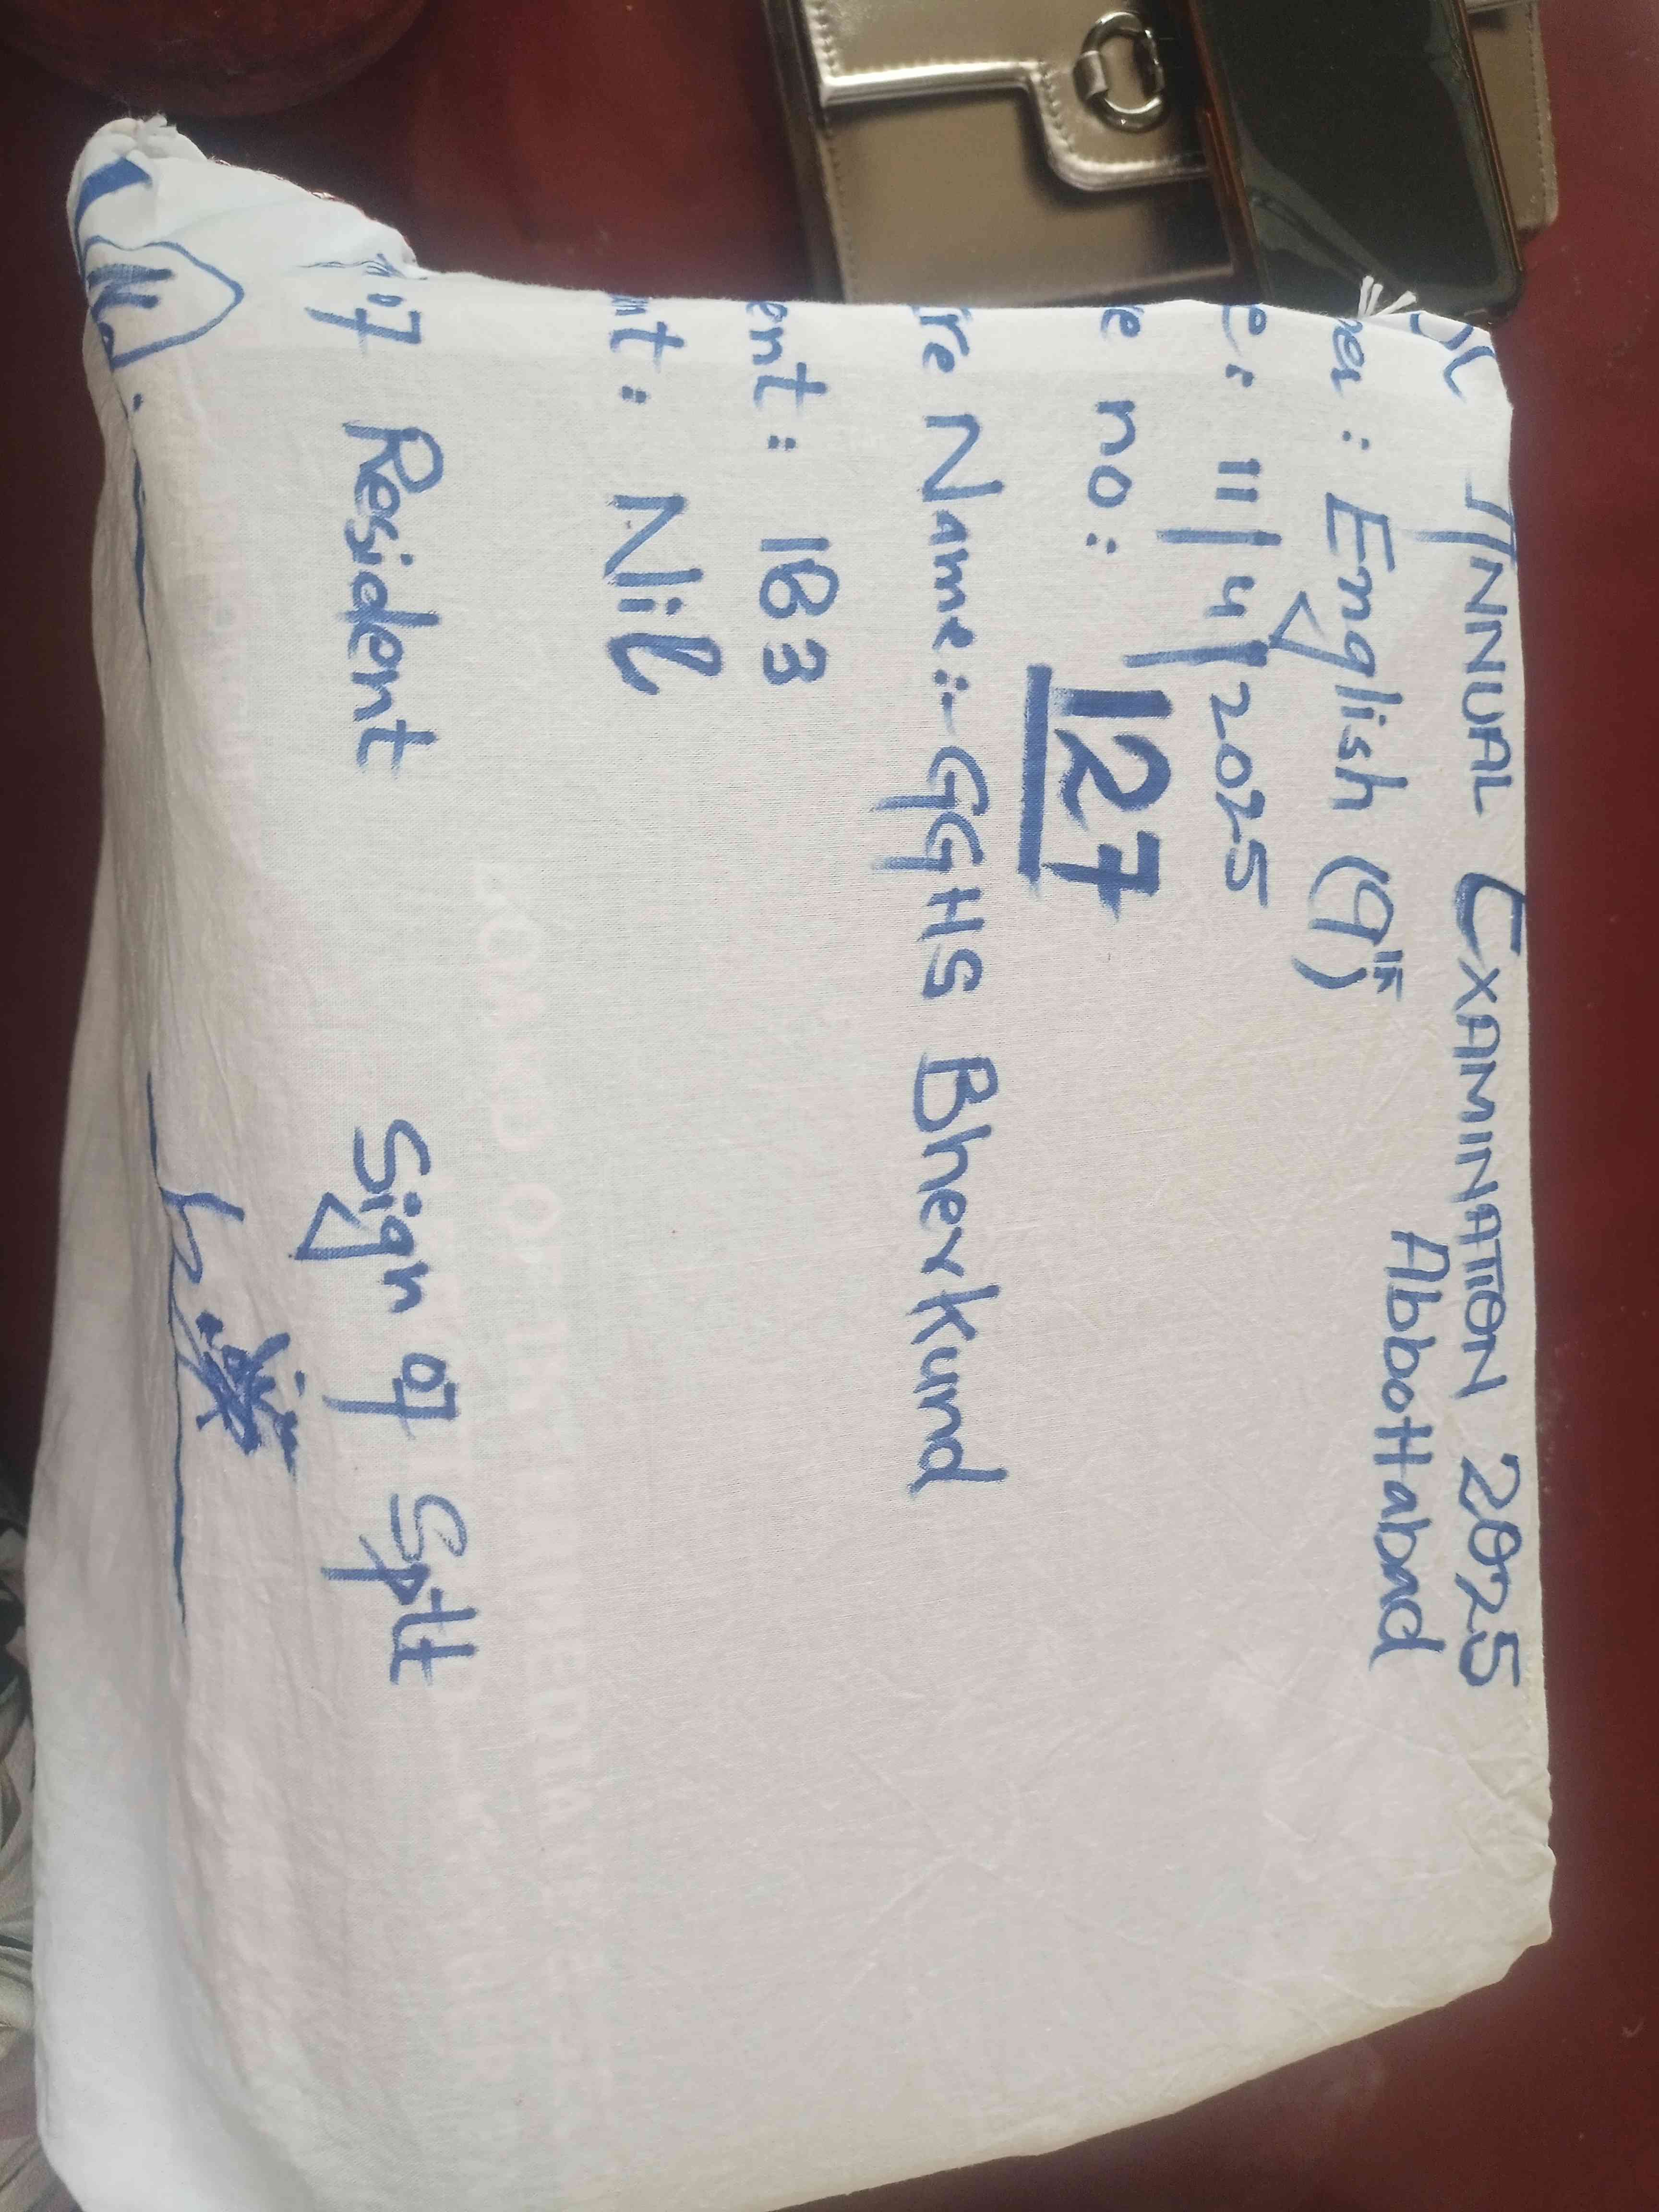 ANNUAL EXAMINATION 2025
AbboHabad
per: English (9th)
e: 11/4/2025
e no: 127
re Name:- GGHS Bherkund
ent: 183
nt: Nil
of Resident Sign of Sptt